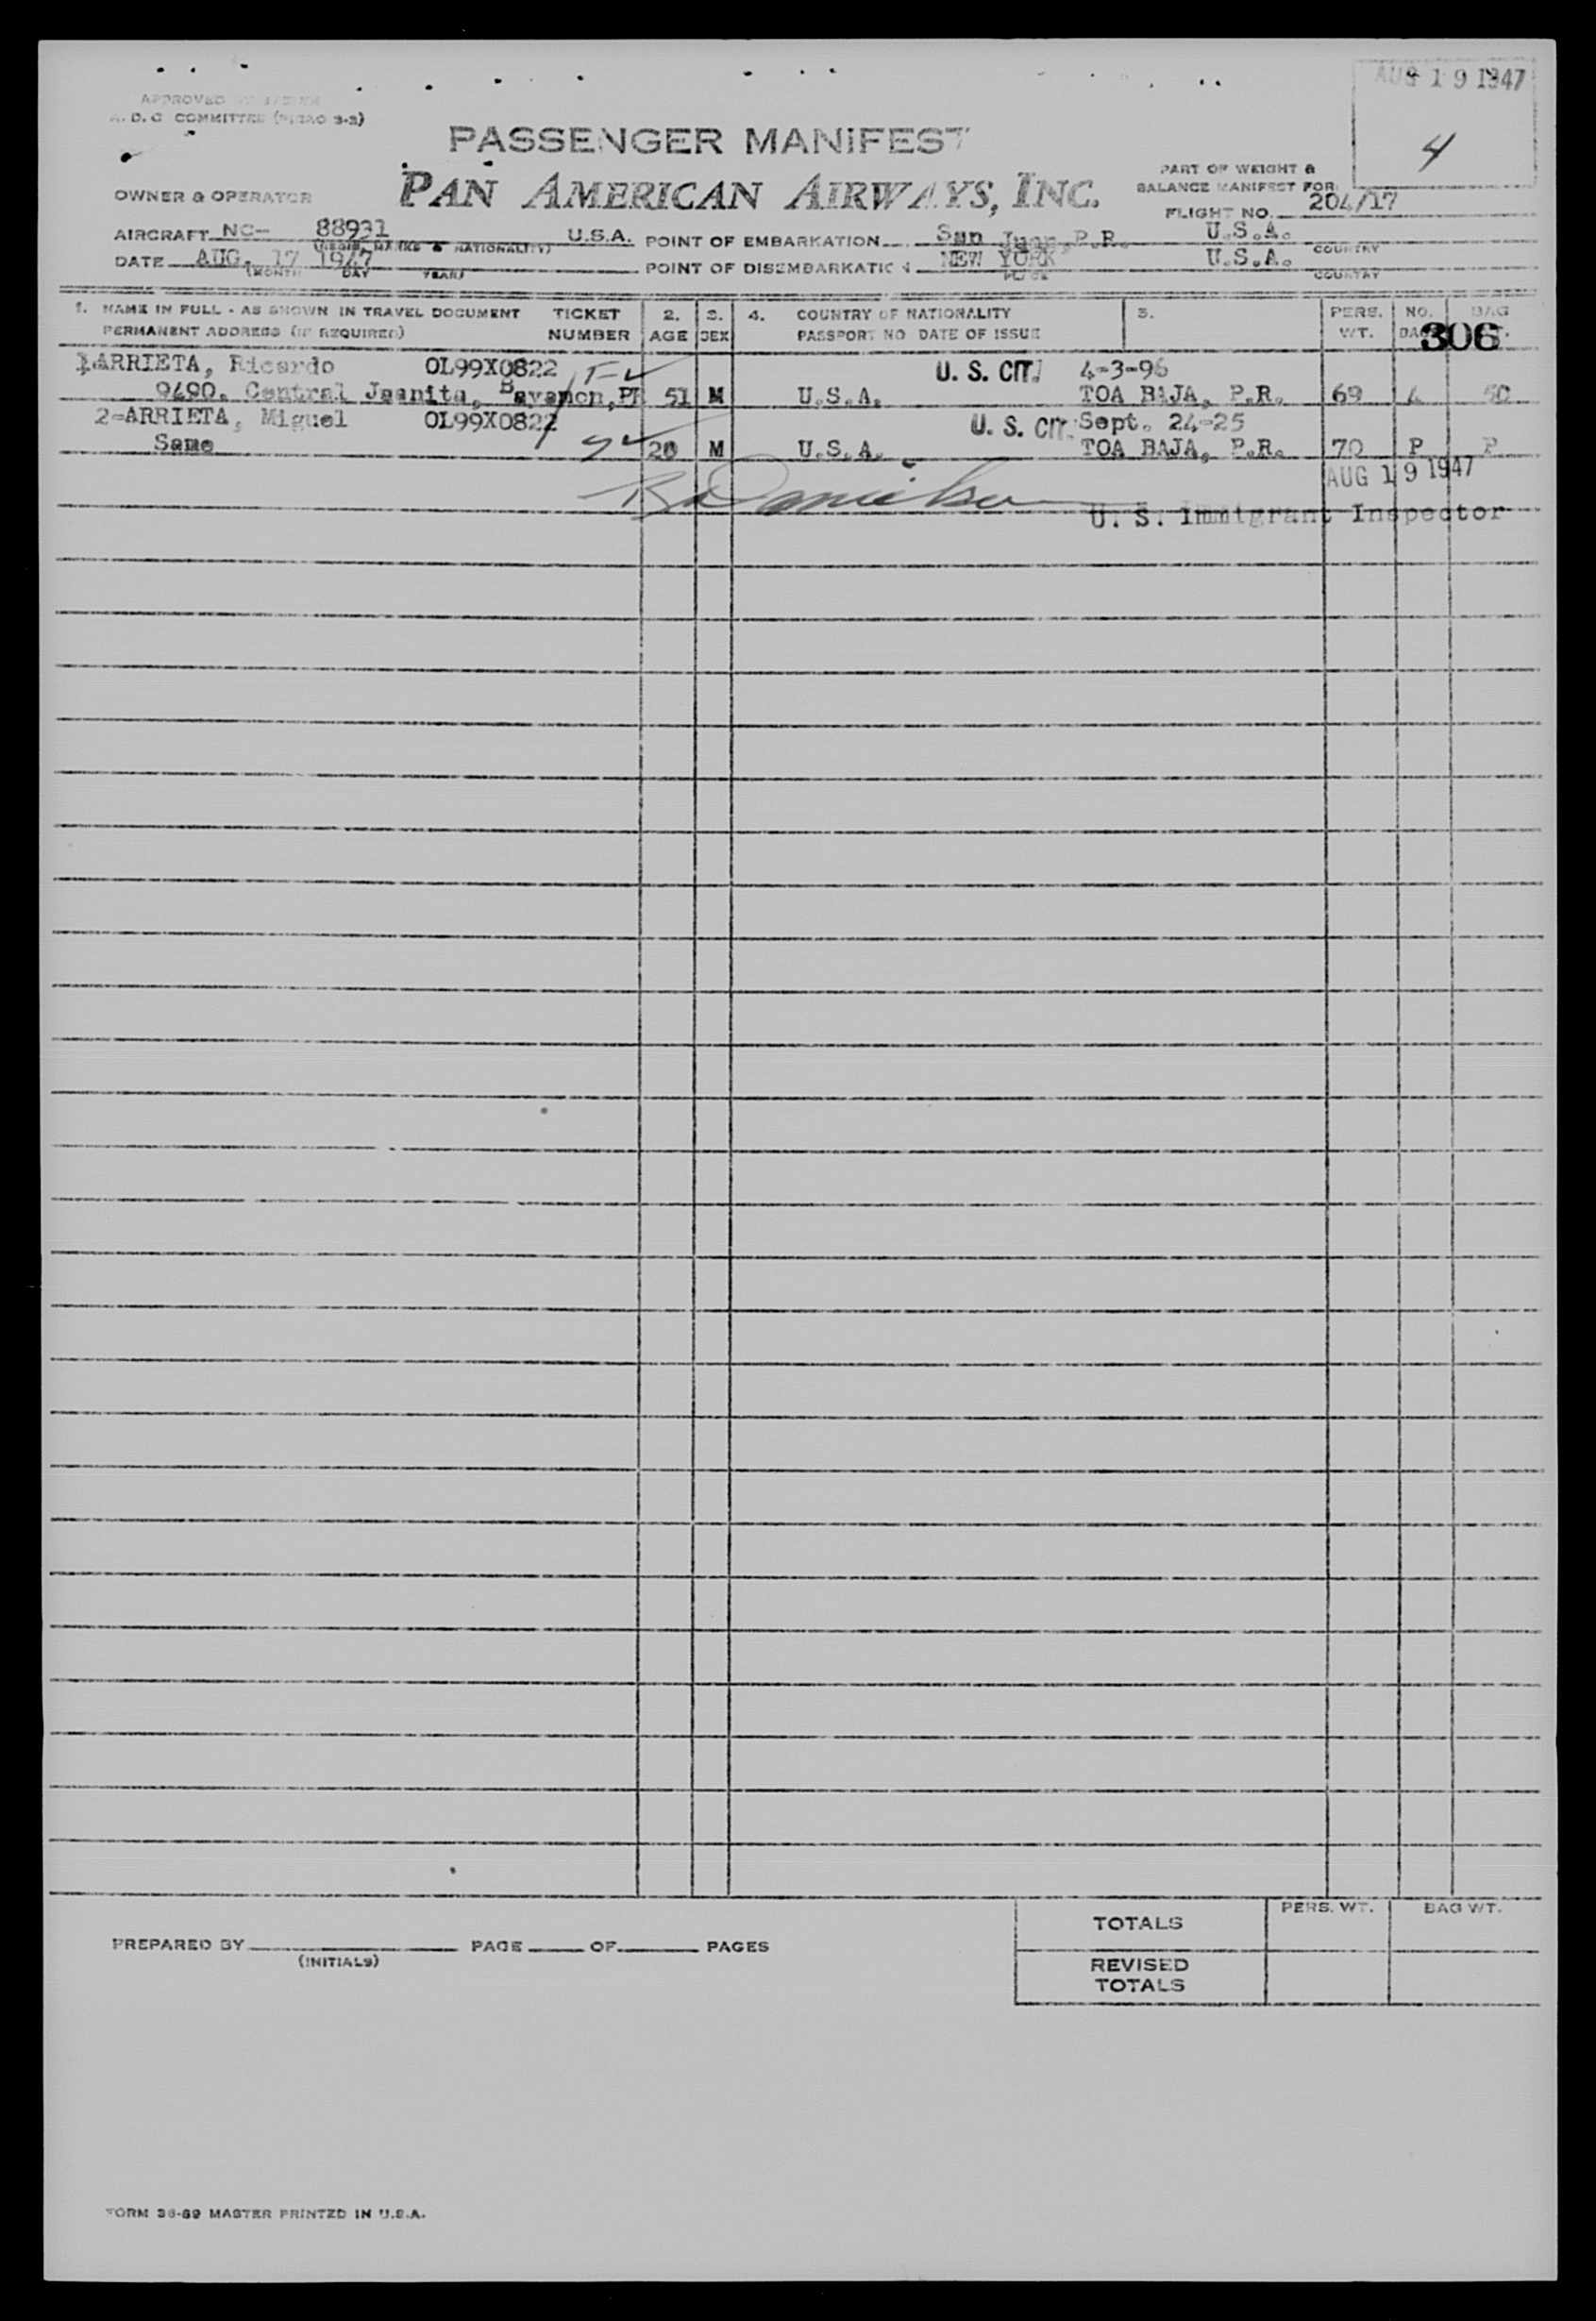 AUG 19 1947
4
APPROVED
A. D. C COMMITTEE
PASSENGER MANIFEST
PAN AMERICAN AIRWAYS, INC.
OWNER & OPERATOR
PART OF WEIGHT &
BALANCE MANIFEST FOR
FLIGHT NO. 204/17
AIRCRAFT NC- 88931 U.S.A. POINT OF EMBARKATION San Juan, P.R. U.S.A.
MARKS & NATIONALITY) COUNTRY
DATE AUG. 17 1947 POINT OF DISEMBARKATION NEW YORK U.S.A.
(MONTH DAY YEAR) PLACE COUNTRY
1. NAME IN FULL - AS SHOWN IN TRAVEL DOCUMENT TICKET 2. 3. 4. COUNTRY OF NATIONALITY 5. PERS. NO. BAG
PERMANENT ADDRESS (IF REQUIRED) NUMBER AGE SEX PASSPORT NO DATE OF ISSUE WT.
306
1-ARRIETA, Ricardo OL99X0822 U. S. CIT. 4-3-96
Central Juanita, Bayamon, PR 51 M U.S.A. TOA BAJA, P.R. 69 4 50
2-ARRIETA, Miguel OL99X0822 U. S. CIT. Sept. 24-25
Same M U.S.A. TOA BAJA, P.R. 70 P P
AUG 19 1947
U. S. Immigrant Inspector
PREPARED BY PAGE OF PAGES
(INITIALS)
TOTALS PERS. WT. BAG WT.
REVISED
TOTALS
FORM 36-69 MASTER PRINTED IN U.S.A.